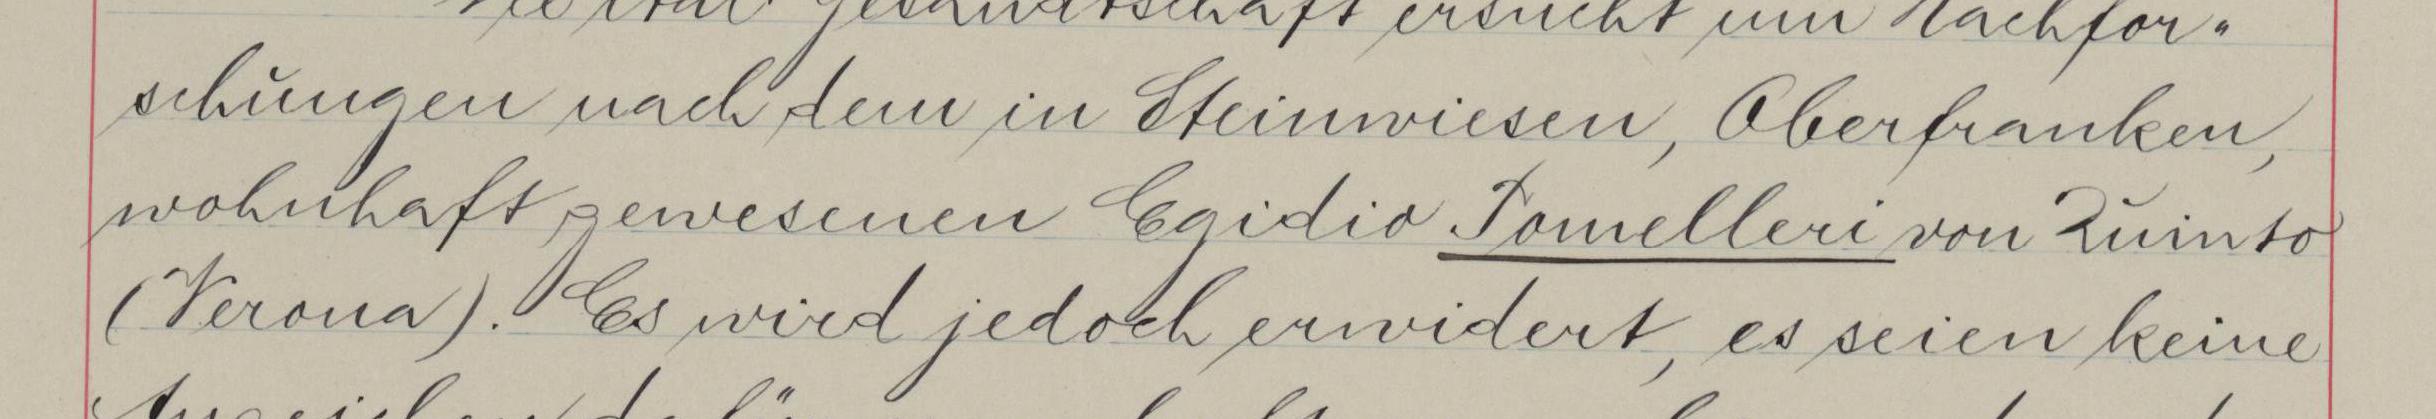 Die ital. Gesandtschaft ersucht um Nachfor-
schungen nach dem in Steinwiesen, Oberfranken,
wohnhaft gewesenen Egidio Tomelleri von Quinto
(Verona). Es wird jedoch erwidert, es seien keine
Anzeichen dafür